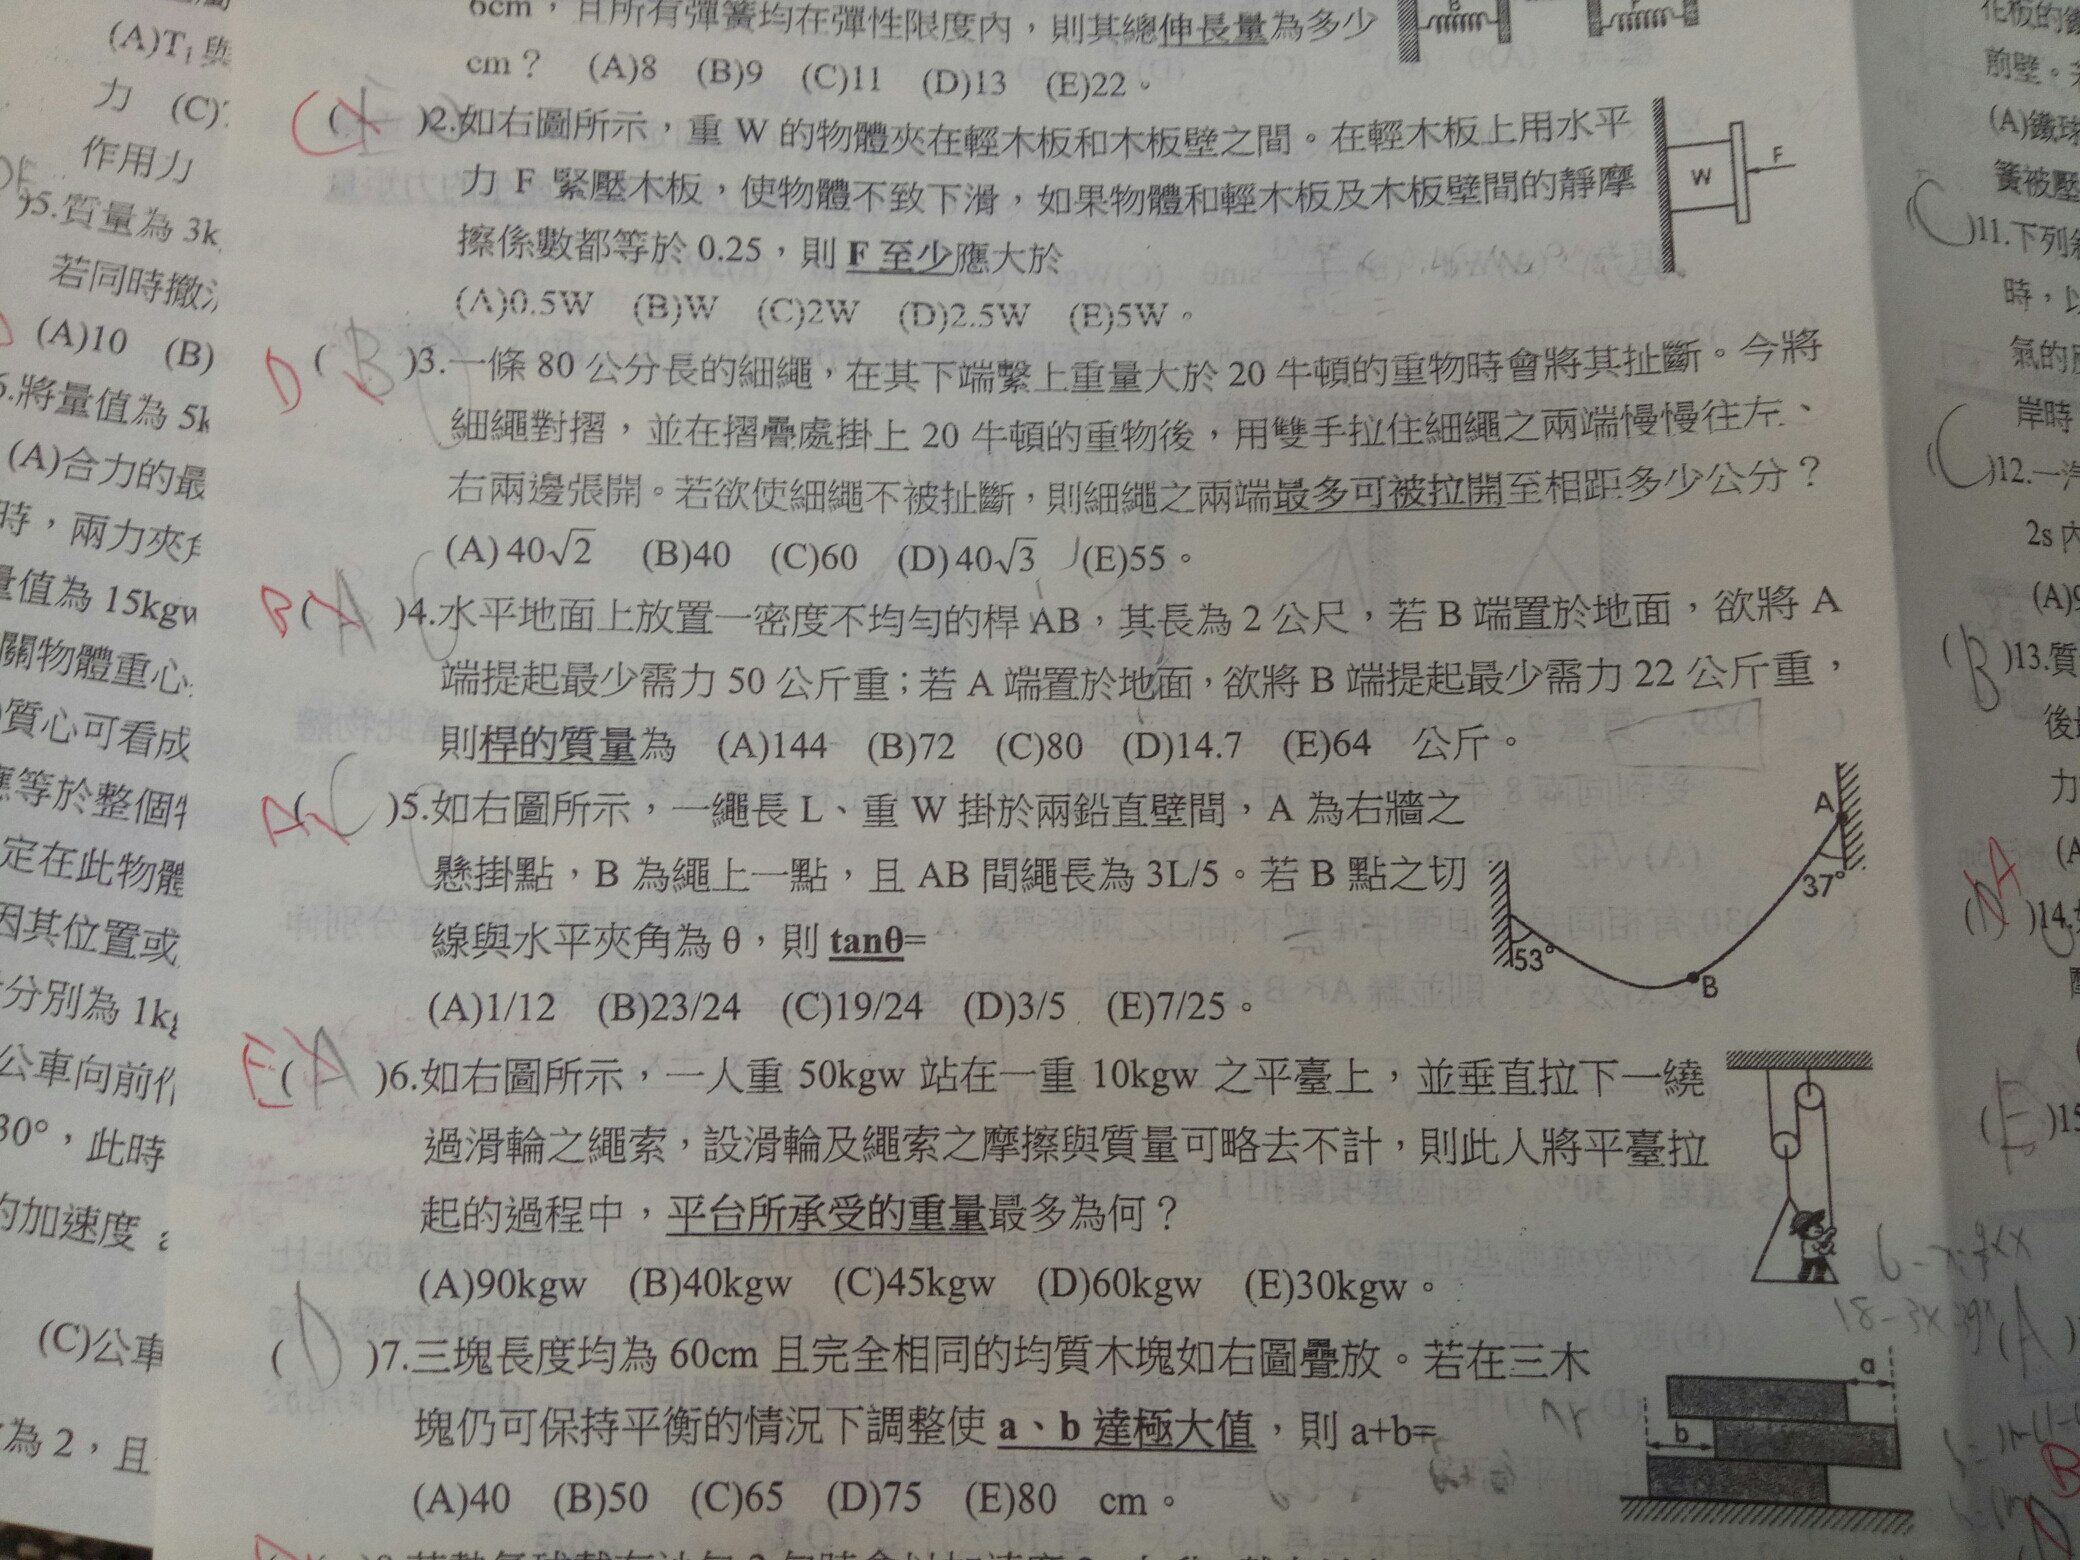 6cm，且所有彈簧均在彈性限度內，則其總伸長量為多少
cm？ (A)8 (B)9 (C)11 (D)13 (E)22。
)2.如右圖所示，重 W 的物體夾在輕木板和木板壁之間。在輕木板上用水平
力 F 緊壓木板，使物體不致下滑，如果物體和輕木板及木板壁間的靜摩
擦係數都等於 0.25，則 F 至少應大於
(A)0.5W (B)W (C)2W (D)2.5W (E)5W。
W F
D ( B )3.一條 80 公分長的細繩，在其下端繫上重量大於 20 牛頓的重物時會將其扯斷。今將
細繩對摺，並在摺疊處掛上 20 牛頓的重物後，用雙手拉住細繩之兩端慢慢往左、
右兩邊張開。若欲使細繩不被扯斷，則細繩之兩端最多可被拉開至相距多少公分？
(A) 40√2 (B)40 (C)60 (D) 40√3 (E)55。
B ( A )4.水平地面上放置一密度不均勻的桿 AB，其長為 2 公尺，若 B 端置於地面，欲將 A
端提起最少需力 50 公斤重；若 A 端置於地面，欲將 B 端提起最少需力 22 公斤重，
則桿的質量為 (A)144 (B)72 (C)80 (D)14.7 (E)64 公斤。
A ( C )5.如右圖所示，一繩長 L、重 W 掛於兩鉛直壁間，A 為右牆之
懸掛點，B 為繩上一點，且 AB 間繩長為 3L/5。若 B 點之切
線與水平夾角為 θ，則 tanθ=
(A)1/12 (B)23/24 (C)19/24 (D)3/5 (E)7/25。
A
37°
53°
B
E ( A )6.如右圖所示，一人重 50kgw 站在一重 10kgw 之平臺上，並垂直拉下一繞
過滑輪之繩索，設滑輪及繩索之摩擦與質量可略去不計，則此人將平臺拉
起的過程中，平台所承受的重量最多為何？
(A)90kgw (B)40kgw (C)45kgw (D)60kgw (E)30kgw。
( D )7.三塊長度均為 60cm 且完全相同的均質木塊如右圖疊放。若在三木
塊仍可保持平衡的情況下調整使 a、b 達極大值，則 a+b=
(A)40 (B)50 (C)65 (D)75 (E)80 cm。
a
b
(A)T₁與
力 (C)
作用力
)5.質量為 3k
若同時撤
(A)10 (B)
.將量值為 5k
(A)合力的最
時，兩力夾
量值為 15kgw
關物體重心
質心可看成
應等於整個
定在此物體
因其位置或
分別為 1kg
公車向前
30°，此時
的加速度
(C)公車
為 2，且
花板的
前壁。
(A)鐵球
簧被壓
(C)11.下列
時，以
氣的
岸時
(C)12.一汽
2s 內
(A)9
(B)13.質
後
力
(A
A
)14.
(E)15
(A)
B